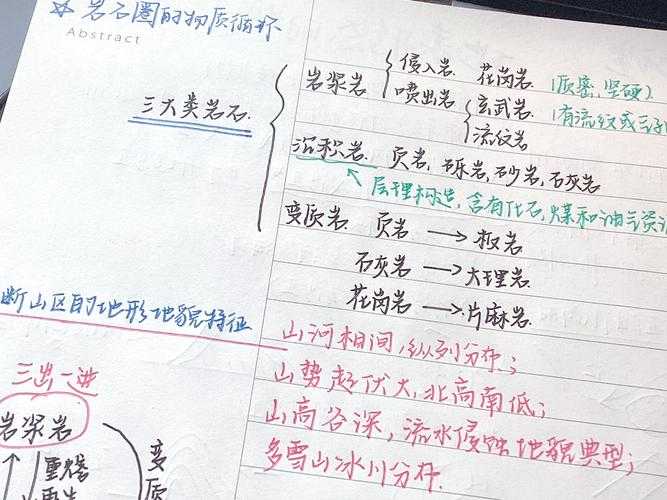 ☆ 岩石圈的物质循环
Abstract
三大类岩石
岩浆岩
侵入岩 花岗岩 (质密,坚硬)
喷出岩 玄武岩 (有流纹或
流纹岩
沉积岩. 页岩,砾岩,砂岩,石灰岩
层理构造,含有化石,煤和油气资
变质岩 页岩 → 板岩
石灰岩 → 大理岩
花岗岩 → 片麻岩
断山区的地形地貌特征
山河相间,纵列分布;
山势起伏大,北高南低;
山高谷深,流水侵蚀地貌典型;
多雪山冰川分布.
三出一进
岩浆岩
重熔
再生
变
质